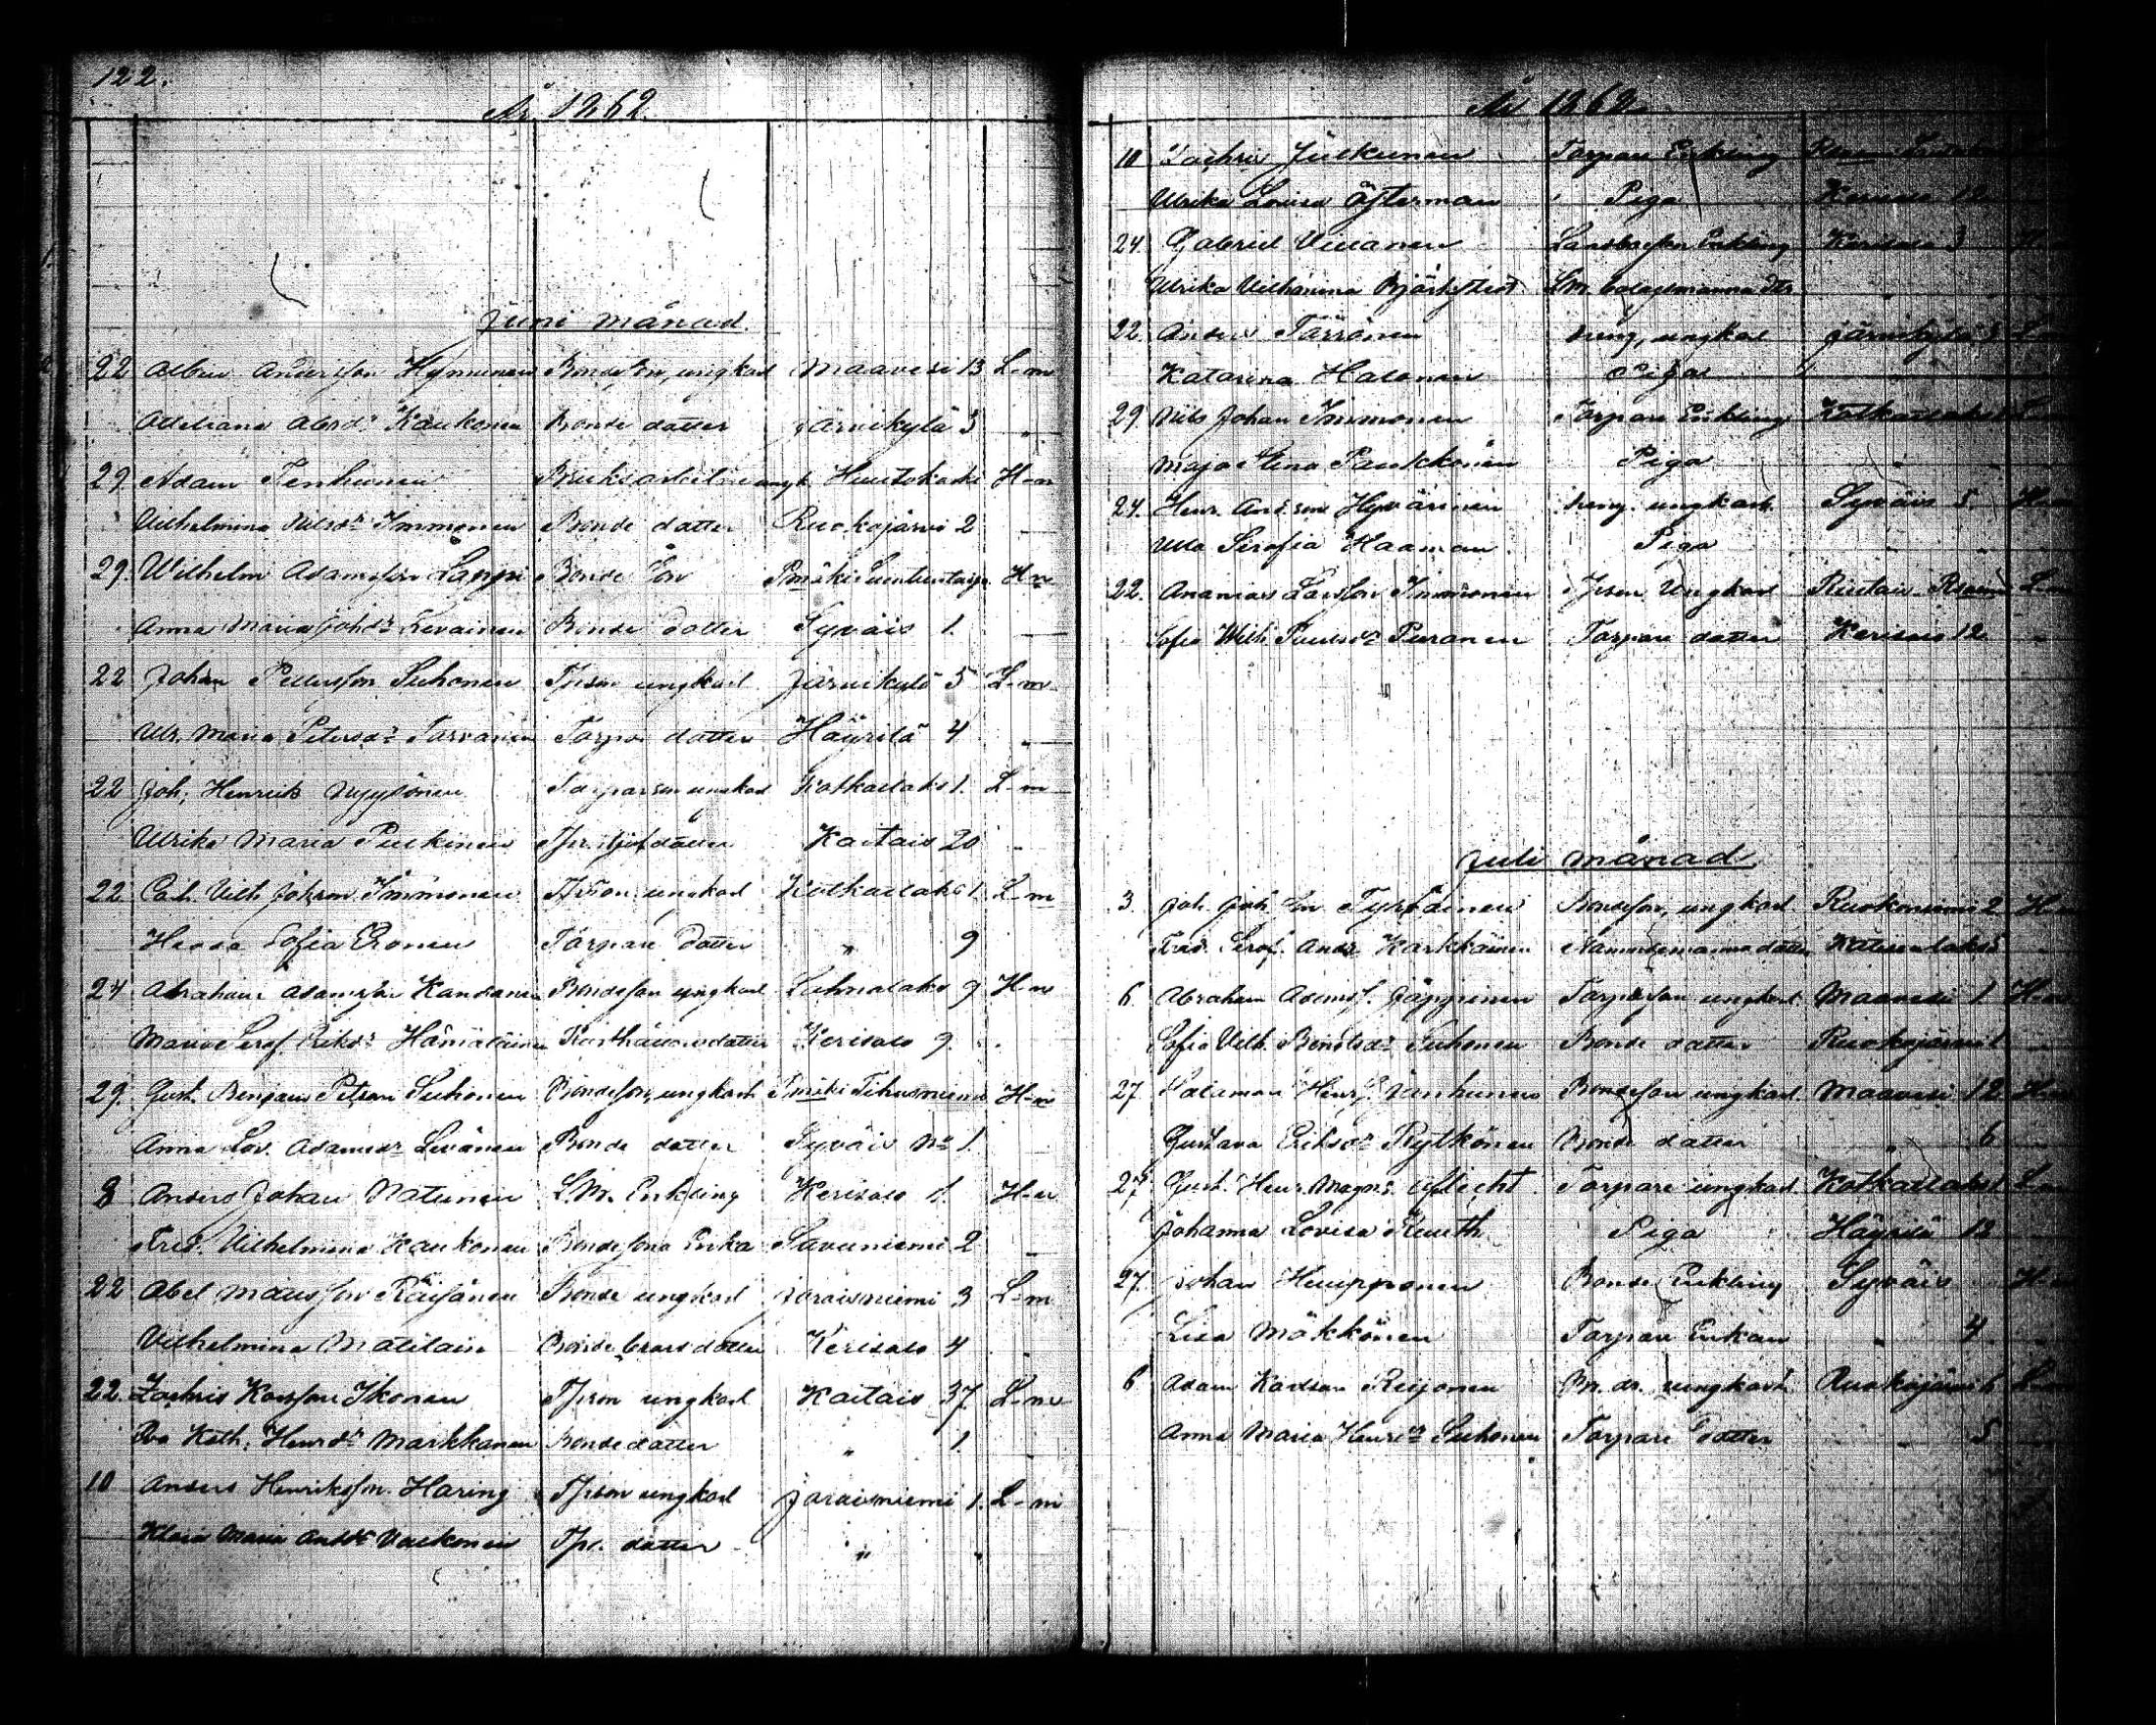 122.
År 1862.
Juni månad.
22 Albin Andersson Hynninen Bondeson, ungkarl Maavesi 13 L-m
Adeliana Absdr Kaukonen Bonde dotter Järvikylä 3 "
29 Adam Tenhunen Bruksarbetare ungk. Huutokoski H-m
Vilhelmina Nilsdr Immonen Bonde dotter Ruokojärvi 2
29. Wilhelm Adamsson Lappi Bonde Son H-m
Anna Maria Johdr Levainen Bonde dotter Syväis 1.
22 Johan Pettersson Suhonen Tpson ungkarl Järvikylä 5 L-m
Ulr. Maria Petersdr Tarvainen Torpar dotter Häyrilä 4 "
22 Joh. Henrik Nyyssönen Torparson ungkarl Kotkatlaks 1. L-m
Ulrika Maria Puukinen Kaitais 20
22 Carl Vilh. Johsson Immonen Tpson ungkarl Kotkatlaks 1. L-m
Hedda Sofia Eronen Torpare dotter " 9
24 Abraham Adamsson Kankanen Bondeson ungkarl Lahnalaks 9 H-m
Maria Seraf. Eriksdr Hämäläinen Kerisalo 9.
29. Gust. Benjam Petsson Suhonen Bondeson, ungkarl H-m
Anna Lov. Adamsdr Levänen Bonde dotter Syväis No 1.
8 Anders Johan Natunen L.Br. Enkling Kerisalo 1. H-m
Fred. Vilhelmina Kaukonen Bondesons Enka Savuniemi 2
22 Abel Mausson Räisänen Bonde ungkarl Joroisniemi 3 L-m
Vilhelmina Matilain Kerisalo 4
22. Zachris Karsson Ikonen Tpson ungkarl Kaitais 37 L-m
Eva Kath. Henrdr Markkanen Bondedotter " 1.
10 Anders Henriksson Haring Tpson ungkarl Joroisniemi 1. L-m
Klara Maria Andsdr Valkonen Tpr. dotter " "
År 1862.
10 Zachris Julkunen Torpare Enkling
Ulrika Lovisa Österman Piga Kerisalo 12
24. Gabriel Enkling Kerisalo 3
Ulrika Vilhelmina Björkstedt
22. Anders Tärrönen dreng, ungkarl Järvikylä 3 L-m
Katarina Halonen Piga "
29. Nils Johan Immonen Torpare Enkling Kotkatlaks
Maja Stina Paukkonen Piga "
24. Henr. Andsson Hyvärinen dreng. ungkarl. Syväis 5. H-m
Ulla Serafia Haaman Piga " "
22. Ananias Larsson Immonen Tpson Ungkarl L-m
Sofia Wilh. Paulsdr Puranen Torpare dotter Kerisalo 12
Juli månad
3. Joh. Joh. Son Tynkkinen Bondeson, ungkarl Ruokoniemi 2 H-m
Fred. Seraf. Andr Karkkäinen Nämndemans dotter
6. Abraham Adamss. Jäppinen Torpareson ungkarl. Maavesi 1. H-m
Sofia Vilh. Bendtsdr Suhonen Bonde dotter Ruokojärvi 1
27 Salamon Henrs. Janhunen Bondeson ungkarl. Maavesi 12. H-m
Gustava Eriksdr Rytkönen Bonde dotter " 6
27. Gust. Henr. Magns. Torpare ungkarl. Kotkatlaks 1. L-m
Johanna Lovisa Piga Häyrilä 12
27. Johan Humpponen Bonde Enkling Syväis H-m
Lisa Mökkönen Torpare Enkan " 4
6 Adam Karlsson Reijonen ungkarl. Ruokojärvi 6 L-m
Anna Maria Henrdr Suhonen Torpare Dotter " 5